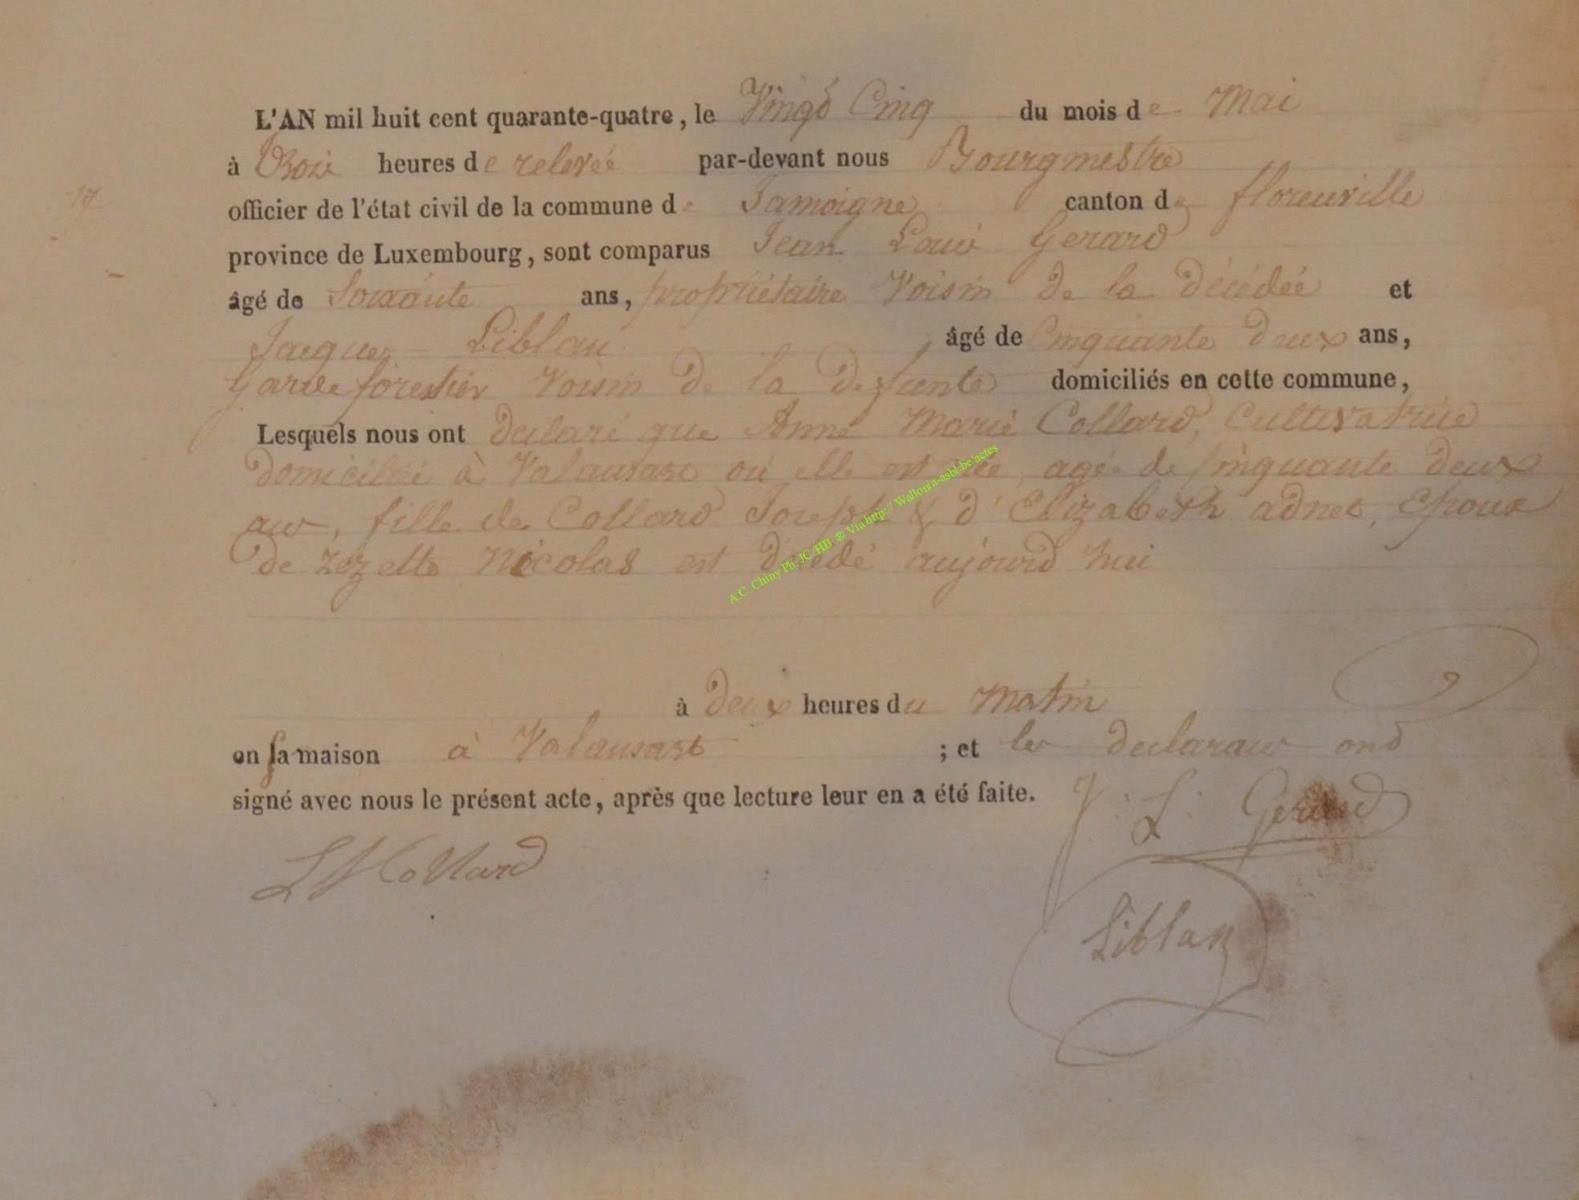 L'AN mil huit cent quarante-quatre, le Vingt Cinq du mois de Mai
à trois heures de relevée par-devant nous Bourgmestre
17
officier de l'état civil de la commune de Jamoigne canton de florenville
province de Luxembourg, sont comparus Jean Louis Gerard
âgé de Soixante ans, propriétaire Voisin de la décédée et
Jacques Liblan âgé de Cinquante deux ans,
Garde forestier Voisin de la defunte domiciliés en cette commune,
Lesquels nous ont declaré que Anne Marie Collard, Cultivatrice
domiciliée à Valansart où elle est née, agée de cinquante deux
ans, fille de Collard Joseph & d'Elizabeth adnet, Epouse
de Zezette Nicolas est décédé aujourd'hui
A.C. Chiny Ph. JC/HB ® Via http://Wallonia-asbl.be/actes
à deux heures du Matin
en sa maison à Valansart ; et les declarans ont
signé avec nous le présent acte, après que lecture leur en a été faite.
J. L. Gerard
Collard
Liblan